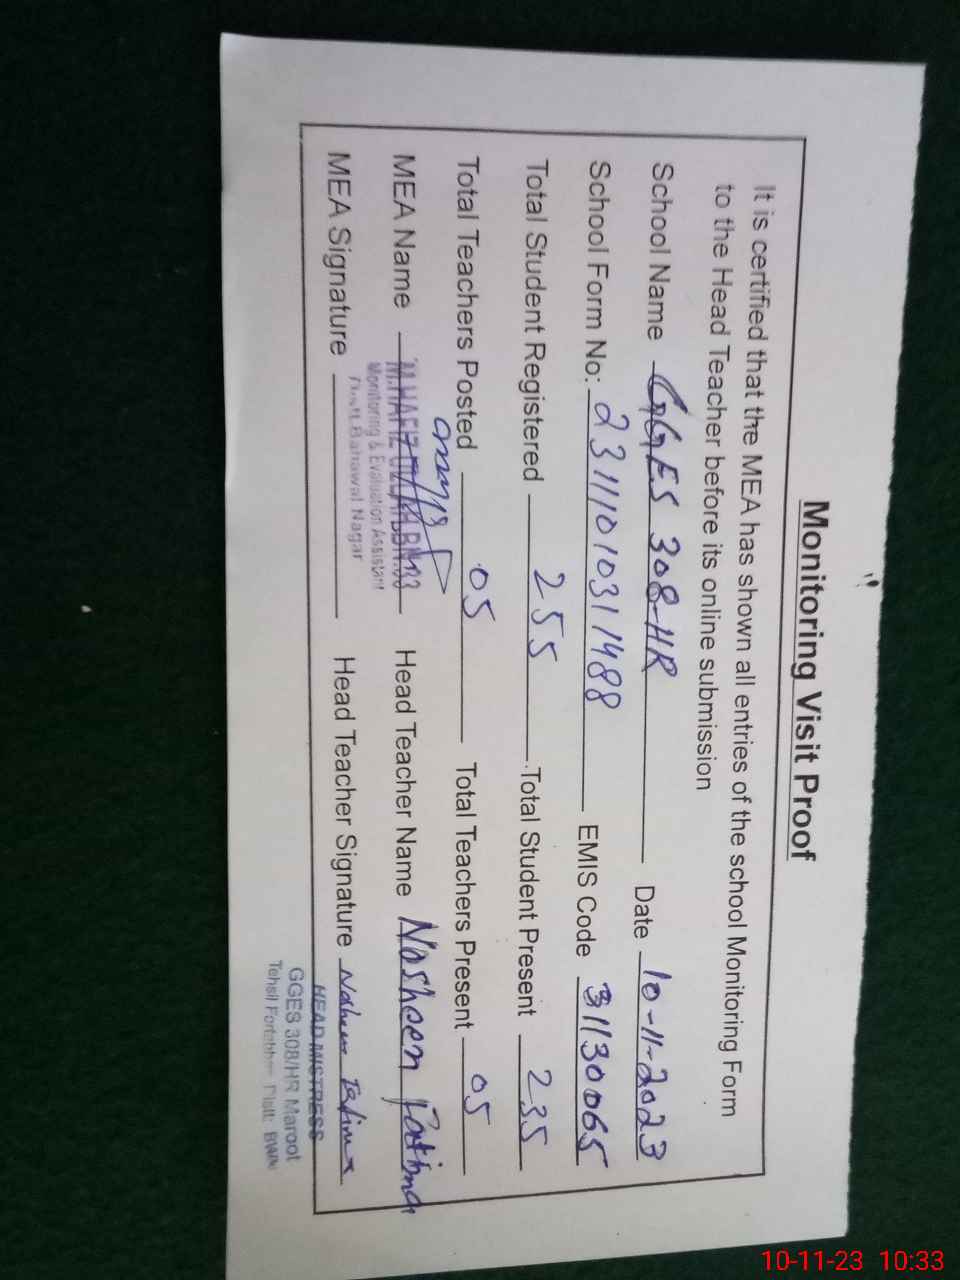 Monitoring Visit Proof
It is certified that the MEA has shown all entries of the school Monitoring Form
to the Head Teacher before its online submission
School Name GGES 308-HR Date 10-11-2023
School Form No: 23111010311488 EMIS Code 31130065
Total Student Registered 255 Total Student Present 235
Total Teachers Posted 05 Total Teachers Present 05
MEA Name M.HAFIZ Head Teacher Name Nosheen Fatima
Monitoring & Evaluation Assistant
Distt. Bahawal Nagar
MEA Signature Head Teacher Signature
HEAD MISTRESS
GGES 308/HR Maroot
Tehsil Distt: BWN
10-11-23 10:33